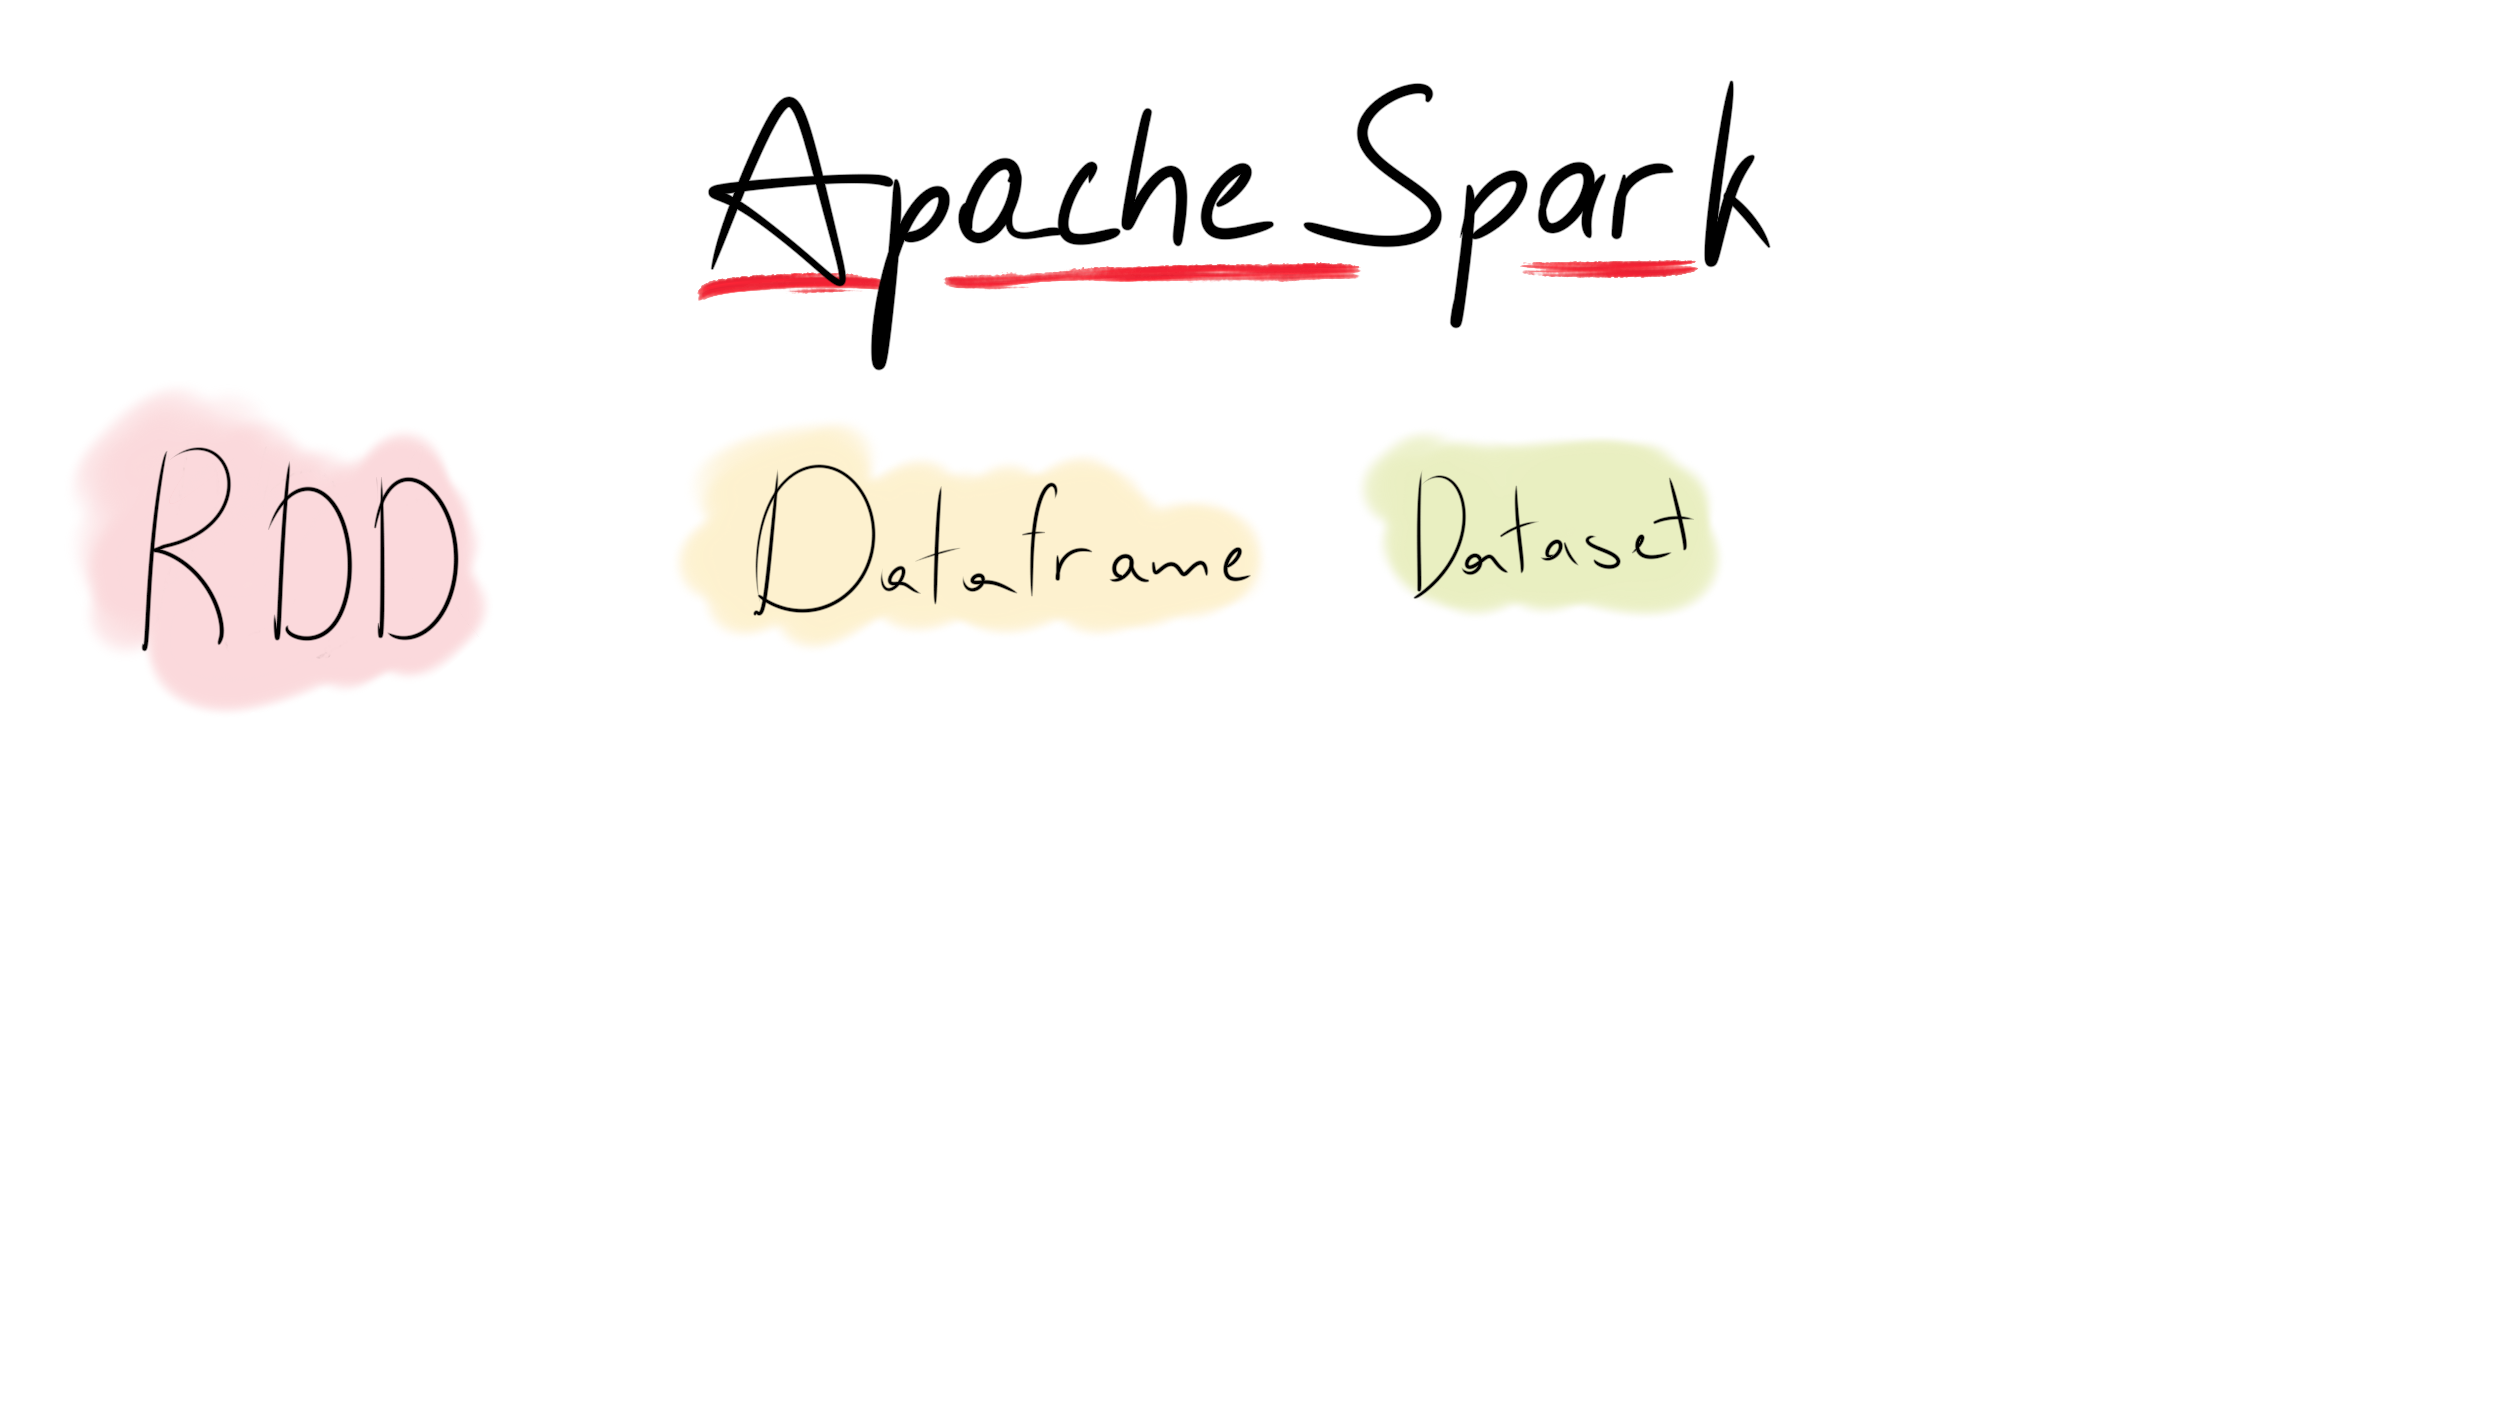 Apache Spark
RDD Dataframe Dataset